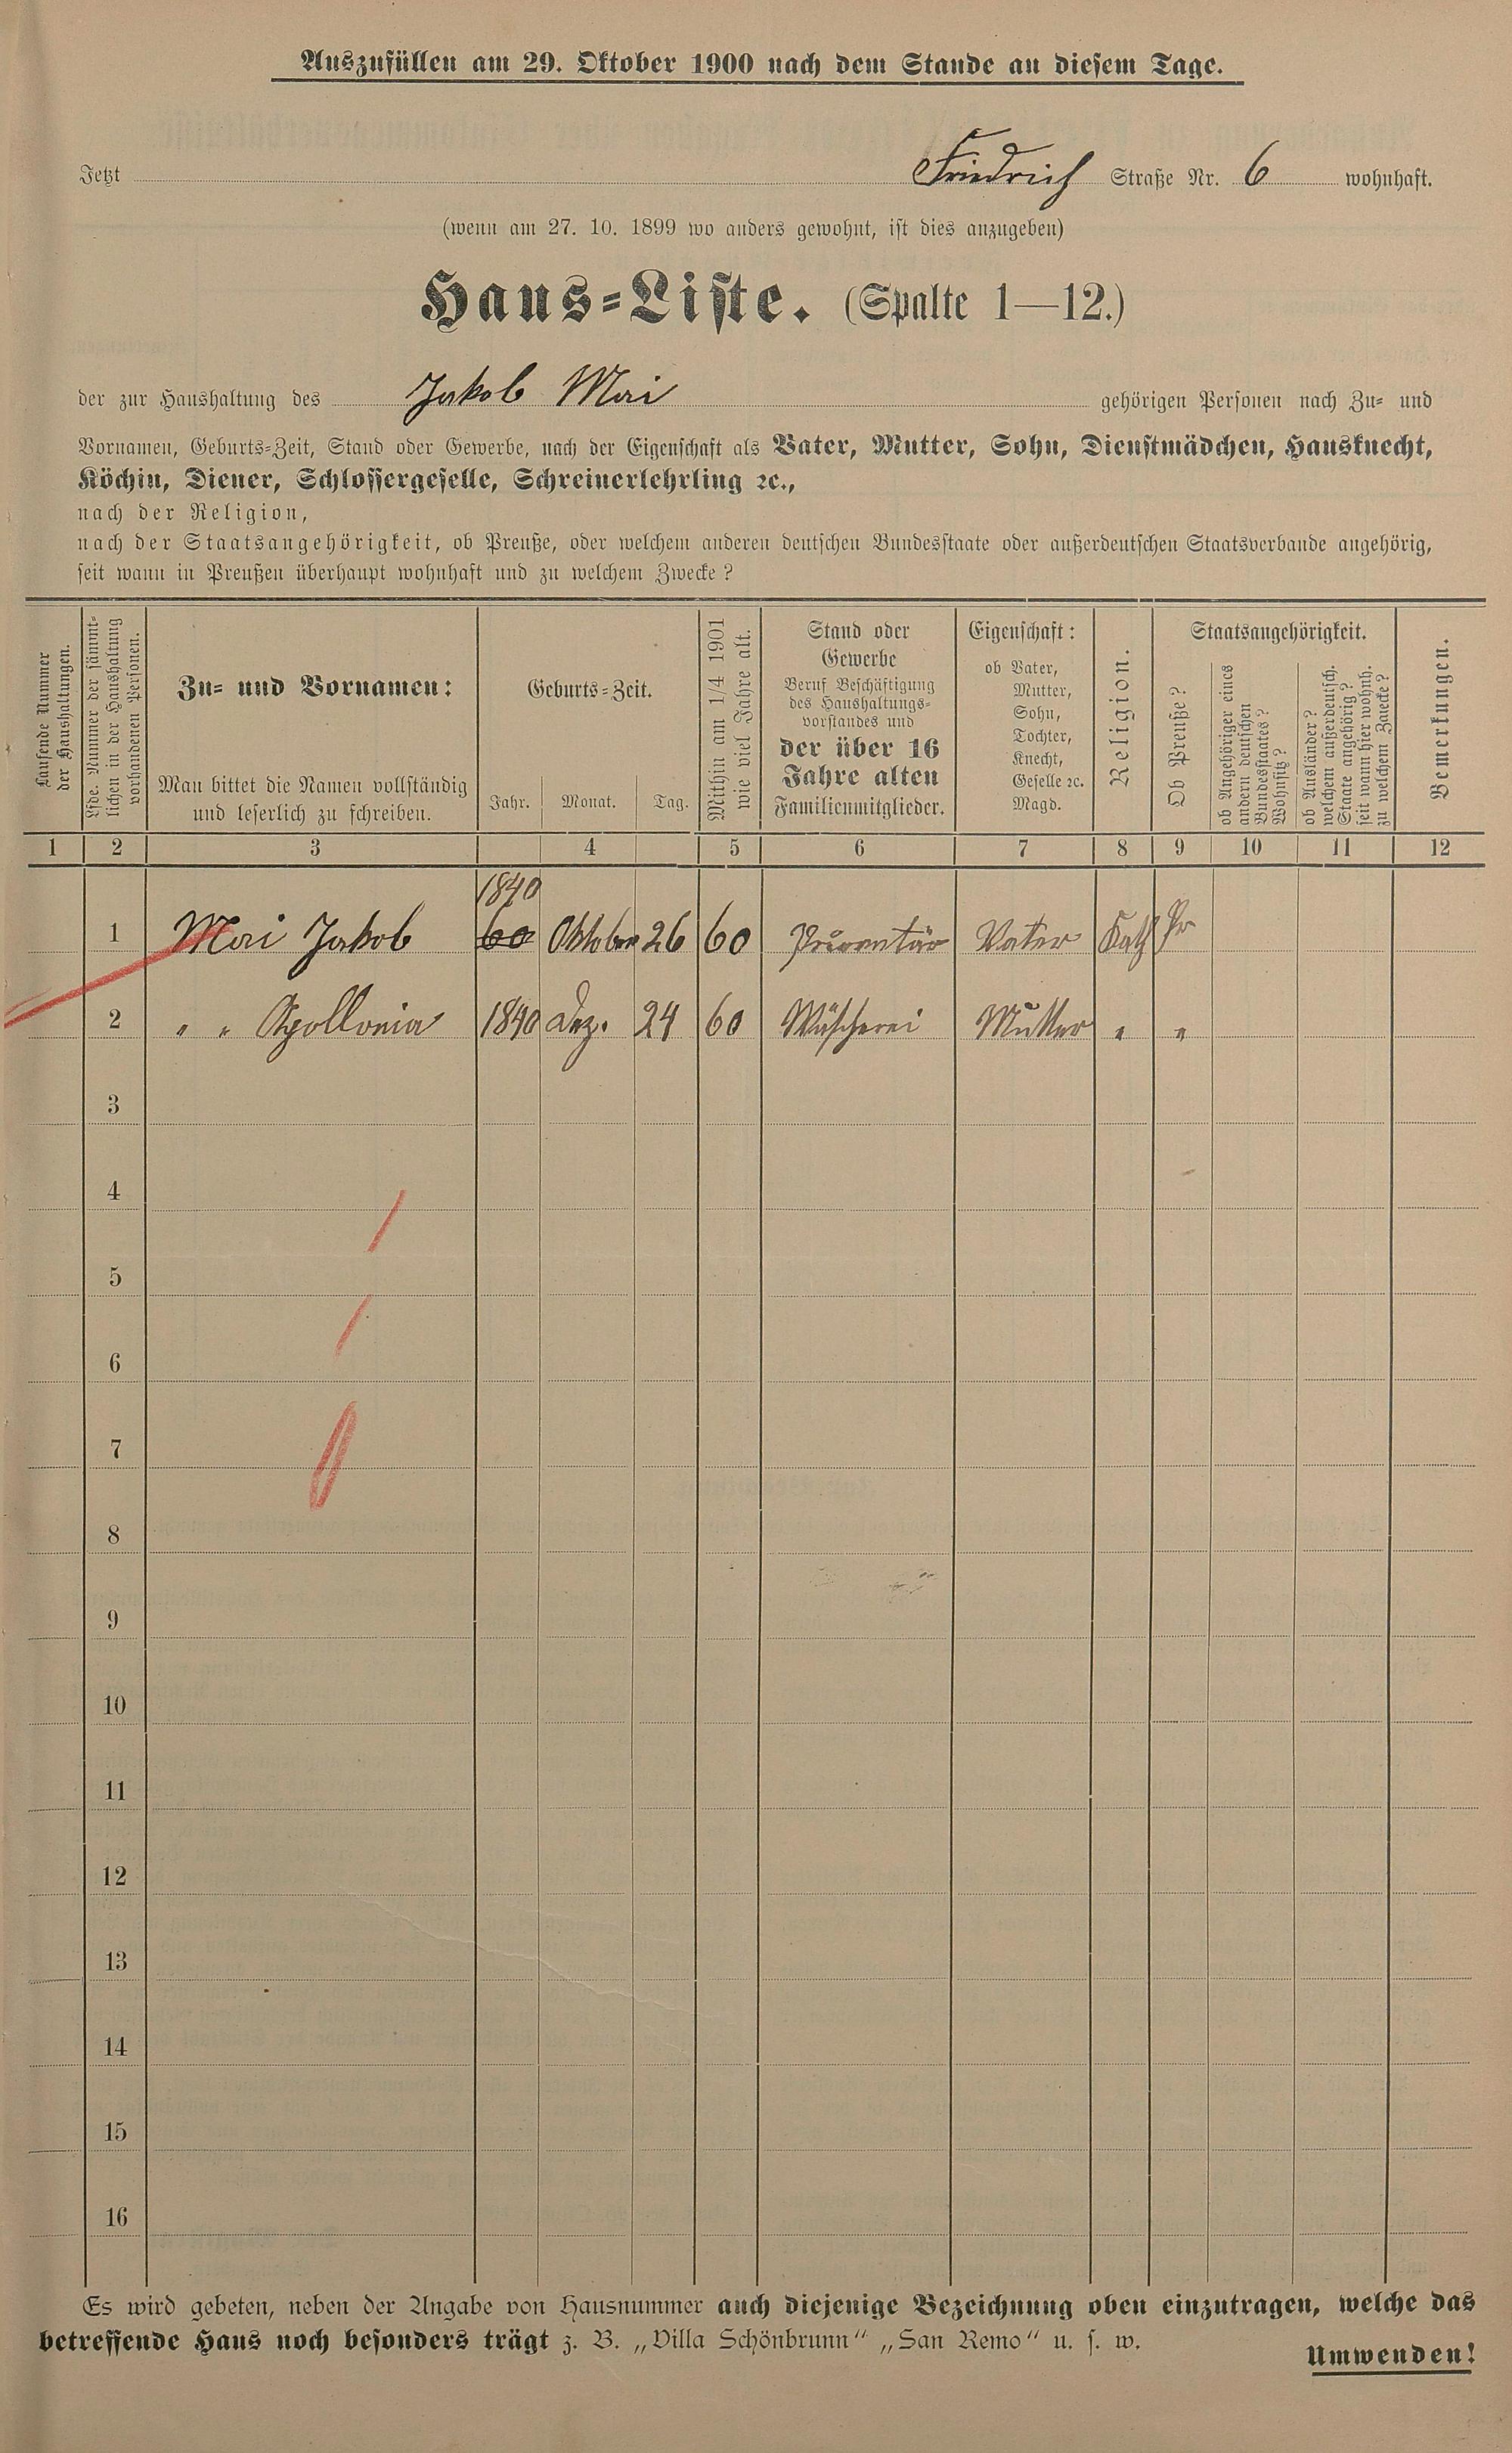 Auszufüllen am 29. Oktober 1900 nach dem Stande an diesem Tage.
Jetzt Friedrich Straße Nr. 6 wohnhaft.
(wenn am 27. 10. 1899 wo anders gewohnt, ist dies anzugeben)
Haus-Liste. (Spalte 1—12.)
der zur Haushaltung des Jakob Mai gehörigen Personen nach Zu- und
Vornamen, Geburts-Zeit, Stand oder Gewerbe, nach der Eigenschaft als Vater, Mutter, Sohn, Dienstmädchen, Hausknecht,
Köchin, Diener, Schlossergeselle, Schreinerlehrling ꝛc.,
nach der Religion,
nach der Staatsangehörigkeit, ob Preuße, oder welchem anderen deutschen Bundesstaate oder außerdeutschen Staatsverbande angehörig,
seit wann in Preußen überhaupt wohnhaft und zu welchem Zwecke?
Laufende Nummer
der Haushaltungen.
Lfde. Nummer der sämmt-
lichen in der Haushaltung
vorhandenen Personen.
Zu- und Vornamen:
Man bittet die Namen vollständig
und leserlich zu schreiben.
Geburts-Zeit.
Jahr. Monat. Tag.
Mithin am 1/4 1901
wie viel Jahre alt.
Stand oder
Gewerbe
Beruf Beschäftigung
des Haushaltungs-
vorstandes und
der über 16
Jahre alten
Familienmitglieder.
Eigenschaft:
ob Vater,
Mutter,
Sohn,
Tochter,
Knecht,
Geselle ꝛc.
Magd.
Religion.
Staatsangehörigkeit.
Ob Preuße?
ob Angehöriger eines
andern deutschen
Bundesstaates?
Wohnsitz?
ob Ausländer?
welchem außerdeutsch.
Staate angehörig?
seit wann hier wohnh.
zu welchem Zwecke?
Bemerkungen.
1 2 3 4 5 6 7 8 9 10 11 12
1840
1 Mai Jakob 60 Oktober 26 60 Vater Kath Pr
2 " " Apollonia 1840 Dez. 24 60 Wäscherei Mutter " "
3
4
5
6
7
8
9
10
11
12
13
14
15
16
Es wird gebeten, neben der Angabe von Hausnummer auch diejenige Bezeichnung oben einzutragen, welche das
betreffende Haus noch besonders trägt z. B. „Villa Schönbrunn“ „San Remo“ u. s. w.
Umwenden!